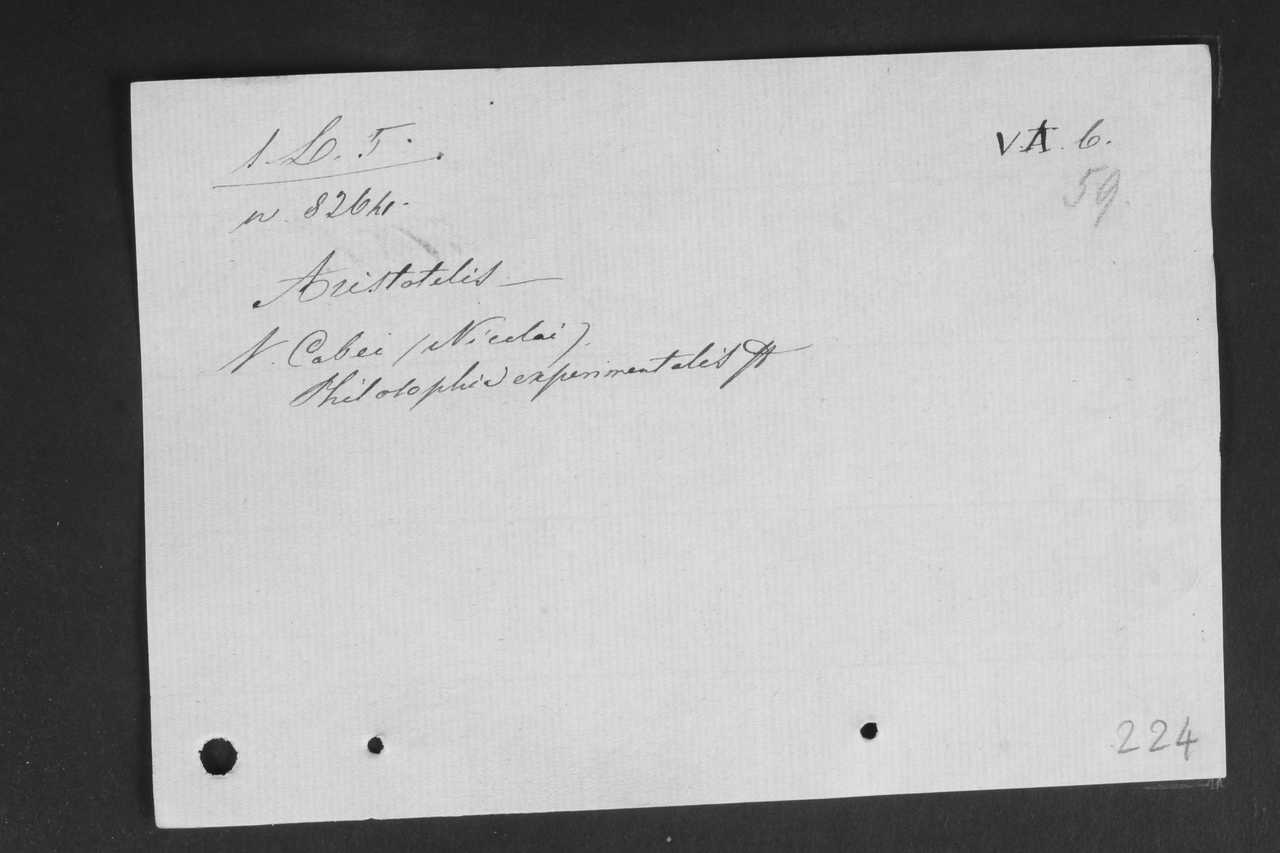 1. L. 5.
V.A. 6.
59.
n. 826
Aristotelis —
V. Cabei (Nicolai).
Philosophia experimentalis
224